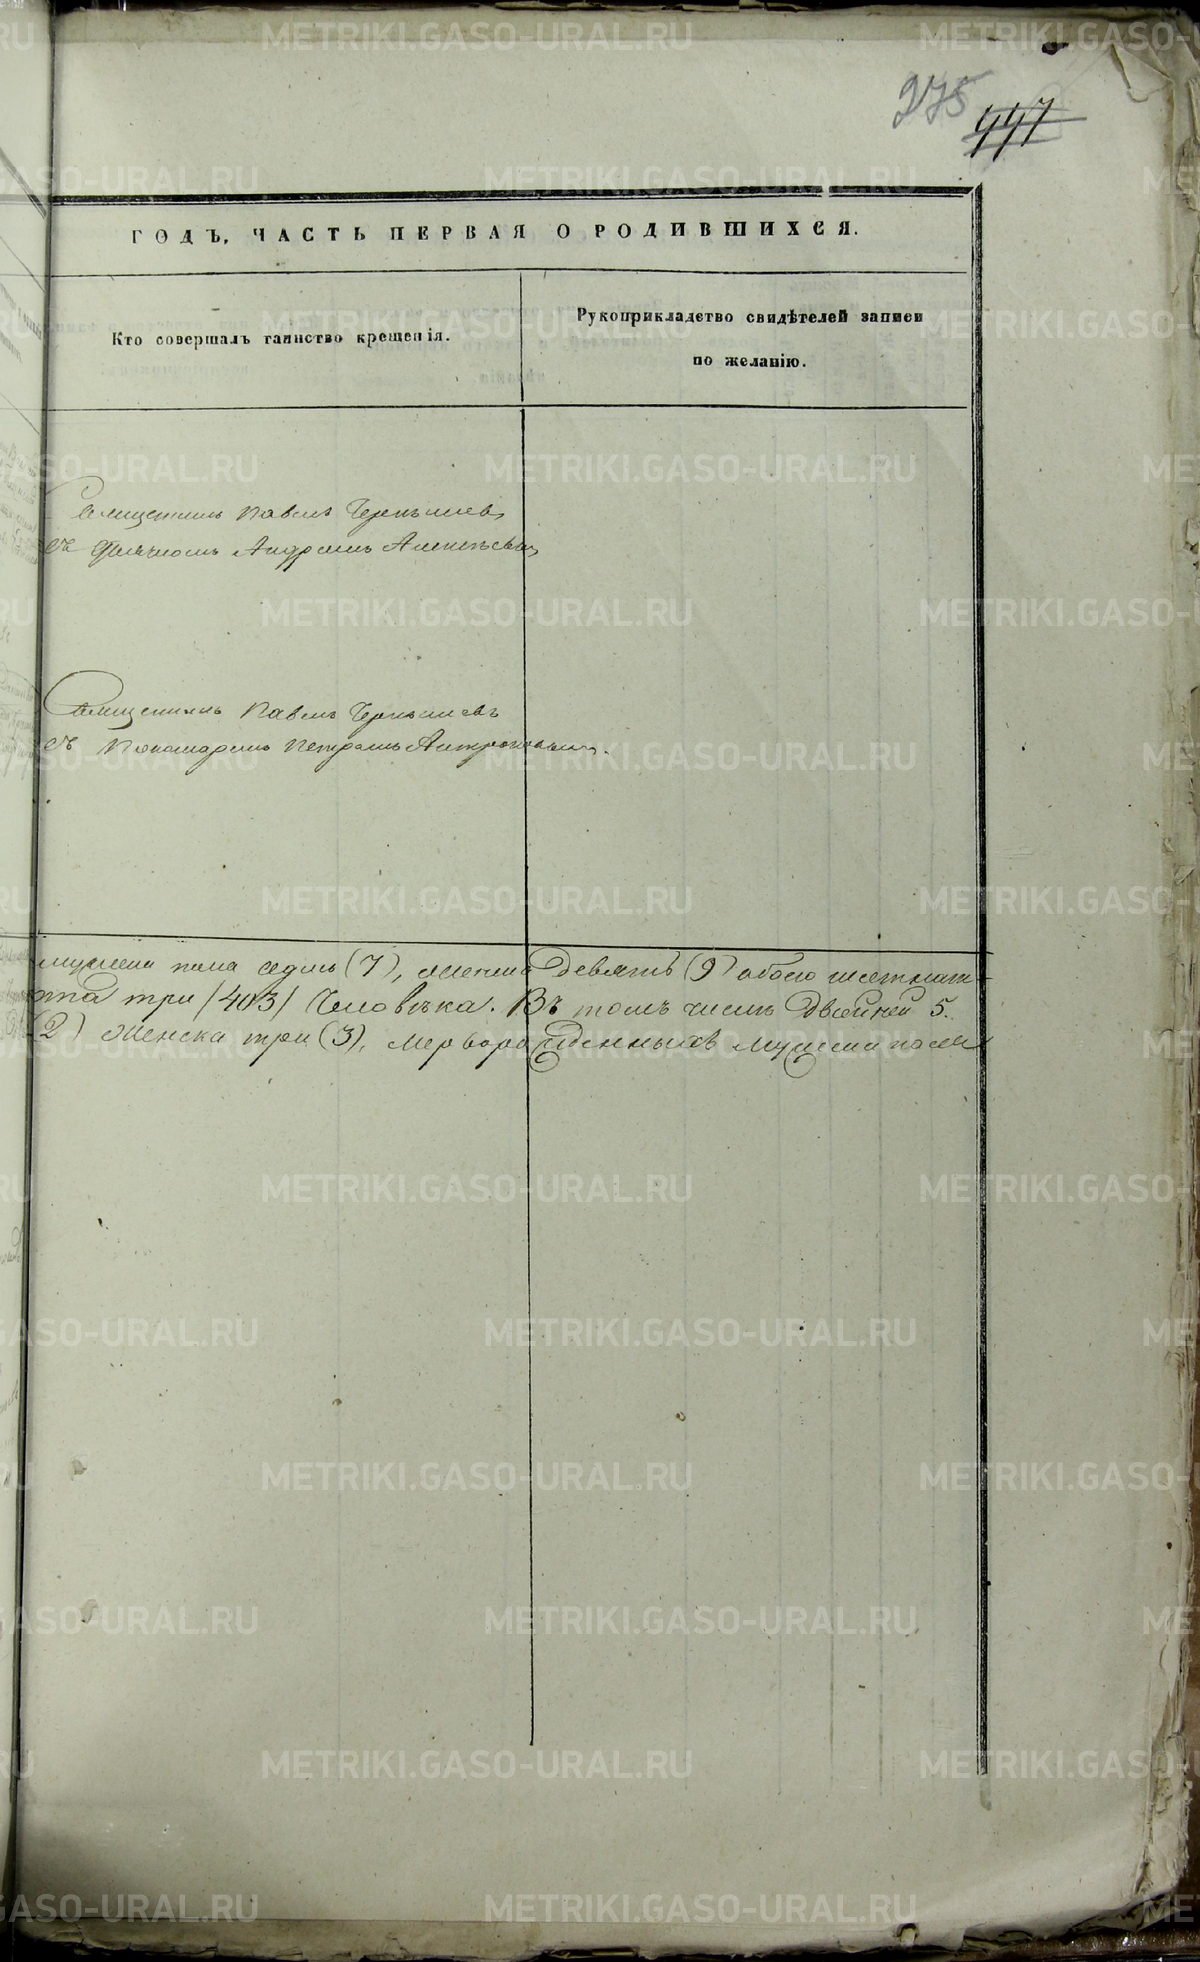 275
447
ГОДЪ, ЧАСТЬ ПЕРВАЯ О РОДИВШИХСЯ.
Кто совершалъ таинство крещенія.
Рукоприкладство свидѣтелей записи
по желанію.
Священникъ Павелъ Чернышевъ
съ Андреемъ Алексѣевымъ
Священникъ Павелъ Чернышевъ
съ Пономаремъ Петромъ
мужеска пола седмь (7), женска девять (9) обоего
три (403) Человѣка. Въ томъ числѣ двойней 5.
(2) женска три (3), мертворожденныхъ мужеска пола
METRIKI.GASO-URAL.RU